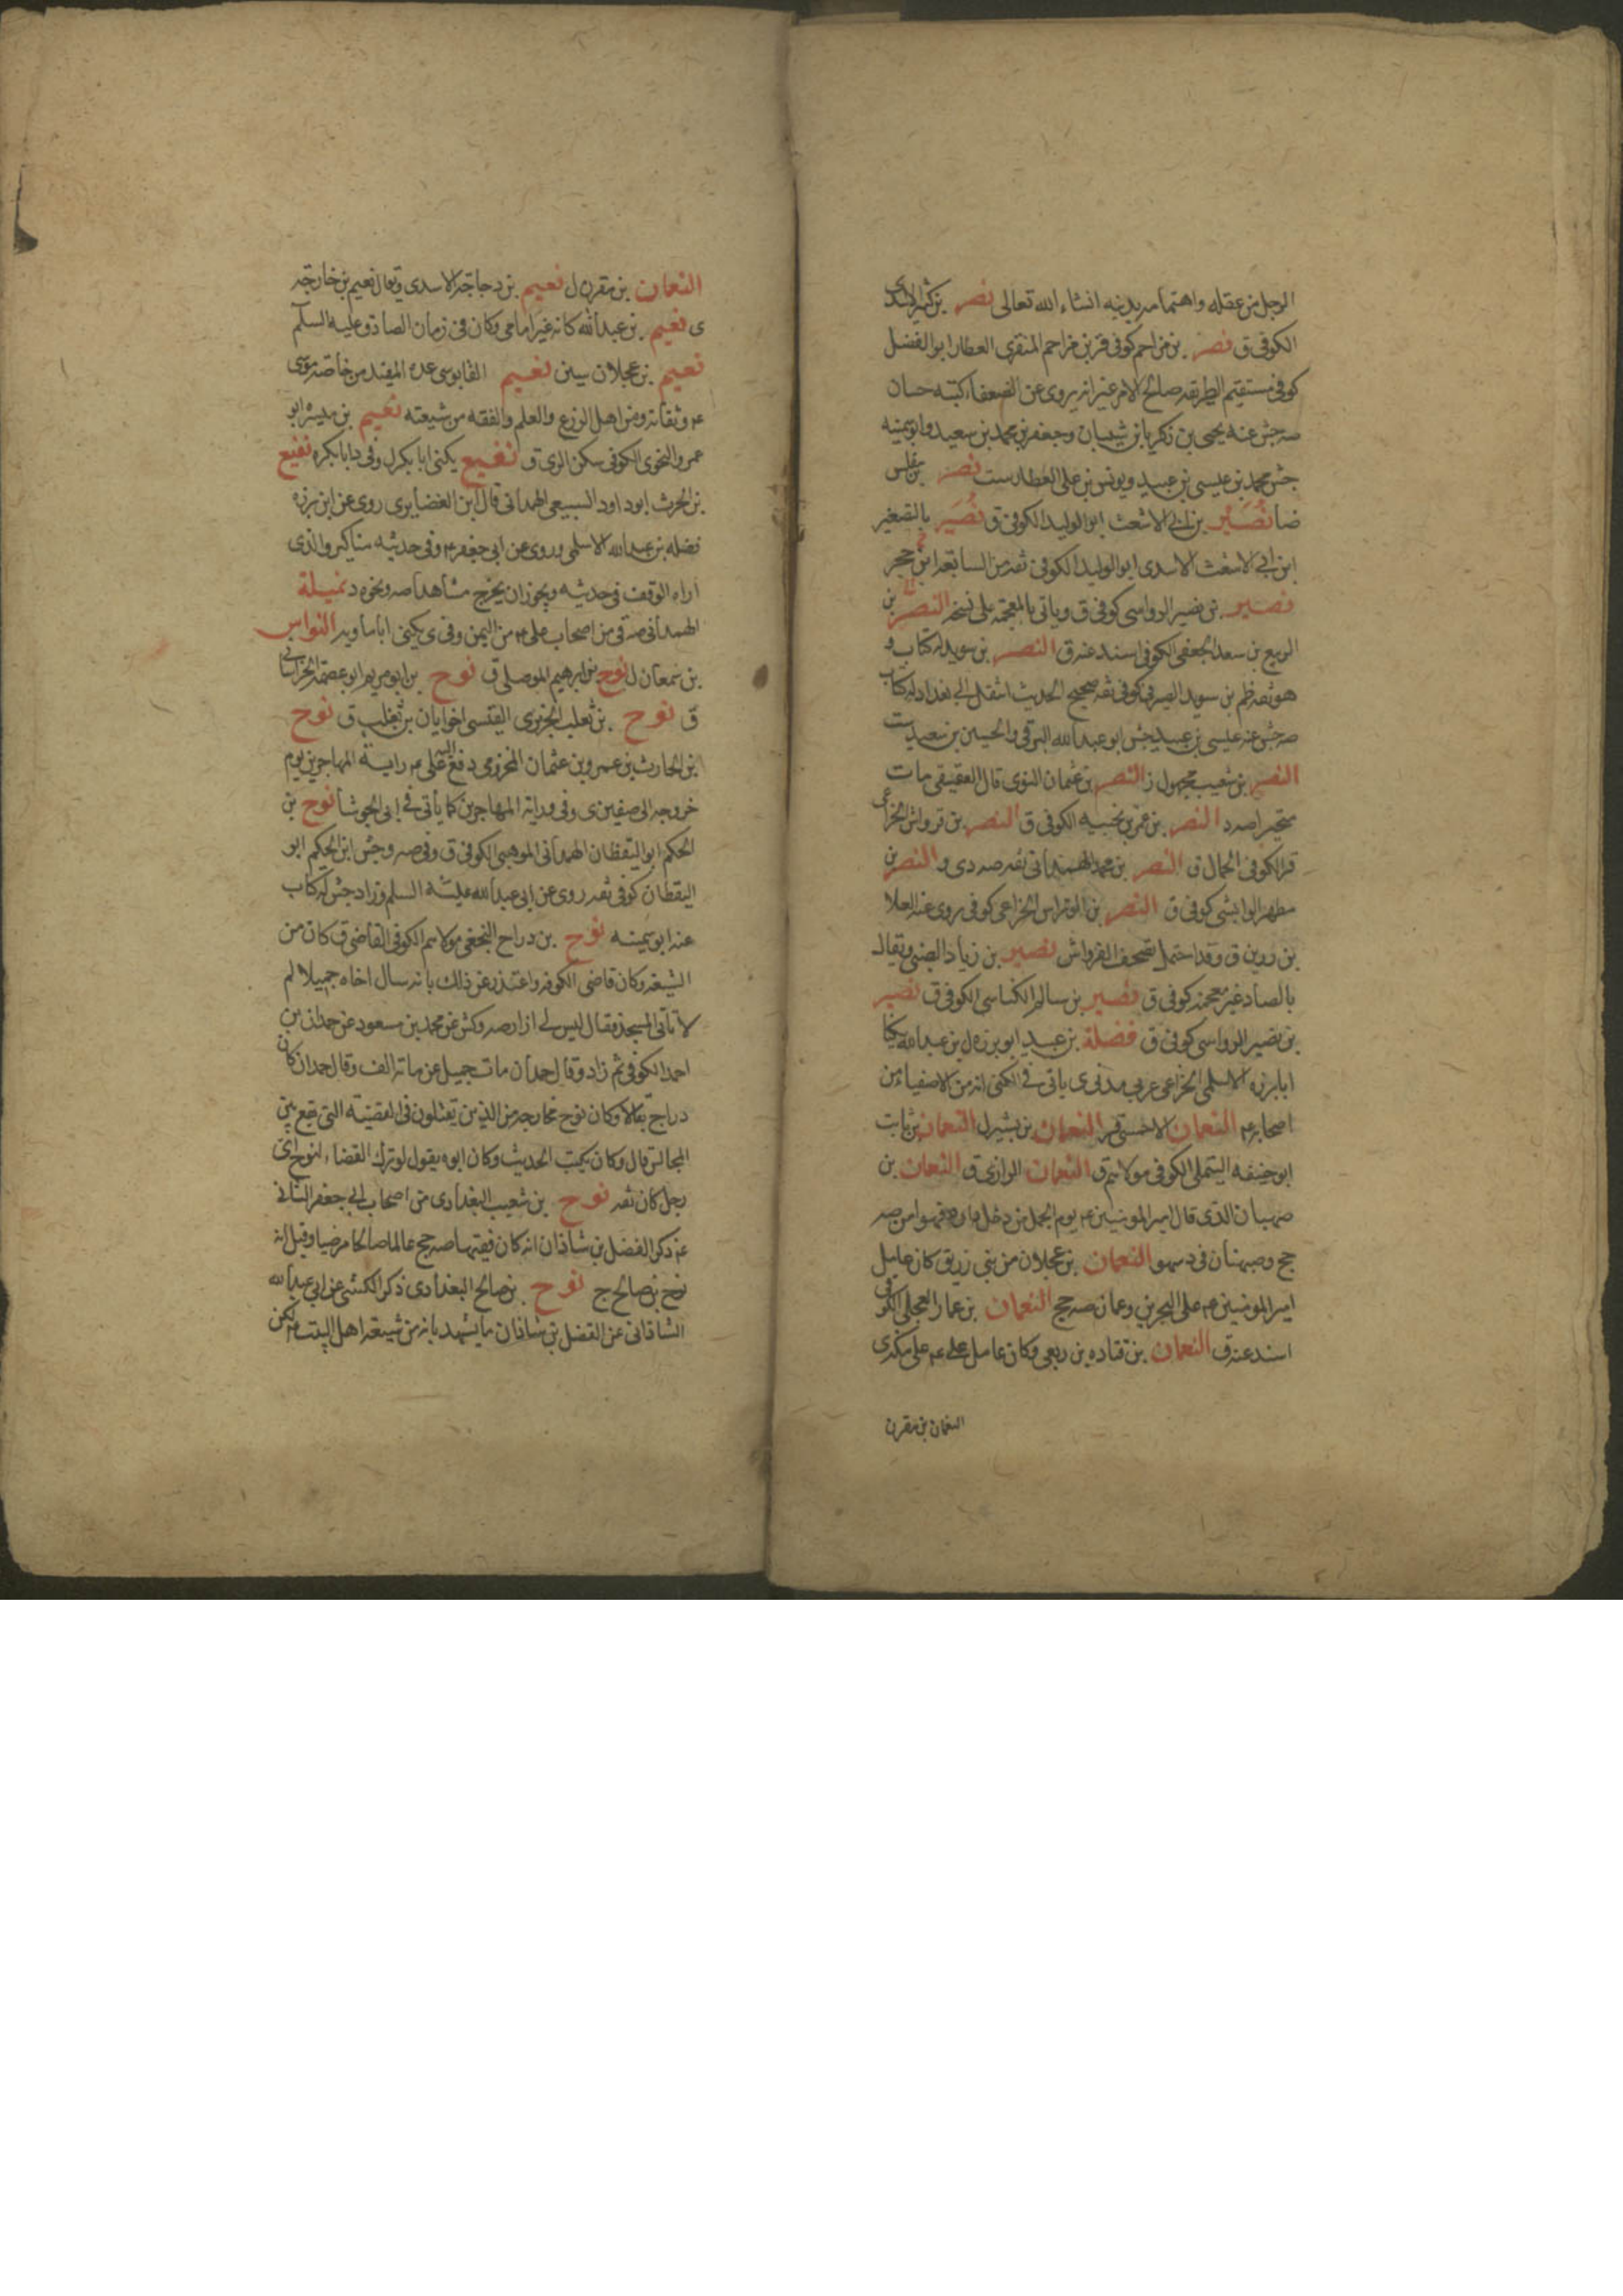 الرجل من عقله واهتمامه بدينه انشاء الله تعالى نصر بن كثير الاسدى
الكوفى ق نصر بن مزاحم كوفى قر بن مزاحم المنقرى العطار ابو الفضل
كوفى مستقيم الطريقه صالح الامر غير انه يروى عن الضعفاء كتبه حسان
صه جش عنه يحيى بن زكريا بن شيبان وجعفر بن محمد بن سعيد وابو سمينه
جش محمد بن عيسى بن عبيد ويونس بن على العطار ست نصر بن مغلس
ضا نُصَير بن ابى الاشعث ابو الوليد الكوفى ق نُصَير بالتصغير
ابن ابى الاشعث الاسدى ابو الوليد الكوفى ثقه من السابعه ابن حجر
نصير بن نصير الرواسى كوفى ق وياتى بالمعجمة على نسخه النضر بن
الربيع بن سعد الجعفى الكوفى اسند عنه ق النضر بن سويد له كتاب و
هو ثقه ظم بن سويد الصيرفى كوفى ثقه صحيح الحديث انتقل الى بغداد له كتاب
صه جش عنه عيسى بن عبيد جش ابو عبد الله البرقى والحسين بن سعيد ست
النضر بن شعيب مجهول ز النضر بن عثمان النوى قال العقيقى مات
متحيرا صه د النضر بن عمر بن نخبيه الكوفى ق النضر بن قرواش الخزاعى
قر الكوفى الجمال ق النضر بن محمد الهمدانى ثقه صه دى و النضر بن
مطهر الوابشى كوفى ق النضر بن الوقراس الخزاعى كوفى روى عنه العلا
بن رزين ق وقد احتمل تصحف القرواش نضير بن زياد الضبى ويقال
بالصاد غير معجمه كوفى ق نضير بن سالم الكناسى الكوفى ق نضير
بن نضير الرواسى كوفى ق نضلة بن عبيد ابو برزه ل بن عبد الله يكنا
ابا برزه الاسلمى الخزاعى عربى مدنى ى ياتى فى الكنى انه من الاصفياء من
اصحابه عم النعمان الاحمسى قر النعمان بن بشير ل النعمان بن ثابت
ابو حنيفه التيملى الكوفى مولاهم ق النعمان الرازى ق النعمان بن
صهبان الذى قال امير المومنين عم يوم الجمل من دخل داره فهو امن صه
جح وصهبان فى د سهو النعمان بن عجلان من بنى زريق كان عامل
امير المومنين عم على البحرين وعمان صه جح النعمان بن عمار العجلى الكوفى
اسند عنه ق النعمان بن قتاده بن ربعى وكان عامل على عم على مكة ى
النعمان بن مقرن
النعمان بن مقرن ل نعيم بن دجاجة الاسدى ويقال نعيم بن خارجة
ى نعيم بن عبد الله كانه غير امامى وكان فى زمان الصادق عليه السلام
نعيم بن عجلان سين نعيم القابوسى عده المفيد من خاصة موسى
عم وثقاته ومن اهل الورع والعلم والفقه من شيعته نعيم بن ميسره ابو
عمرو النحوى الكوفى سكن الرى ق نفيع يكنى ابا بكر ل وفى د ابا بكره نفيع
بن الحرث ابو داود السبيعى الهمدانى قال ابن الغضايرى روى عن ابن برزه
نضله بن عبد الله الاسلمى وروى عن ابى جعفر عم وفى حديثه مناكير والذى
اراه الوقف فى حديثه ويجوز ان يخرج شاهدا صه ونحوه د نميلة
الهمدانى صه قى من اصحاب على عم من اليمن وفى ى يكنى ابا ماويه النواس
بن سمعان ل نوح بن ابرهيم الموصلى ق نوح بن ابو مريم ابو عصمة الخراسانى
ق نوح بن ثعلب الجريرى القيسى اخو ابان بن تغلب ق نوح
بن الحارث بن عمرو بن عثمان المخزومى دفع اليه على عم راية المهاجرين يوم
خروجه الى صفين ى وفى د راية المهاجرين كما يأتى فى ابى الجوشا نوح بن
الحكم ابو اليقظان الهمدانى الموهبى الكوفى ق وفى صه وجش ابن الحكيم ابو
اليقظان كوفى ثقه روى عن ابى عبد الله عليه السلم وزاد جش له كتاب
عنه ابو سمينه نوح بن دراج النخعى مولاهم الكوفى القاضى ق كان من
الشيعه وكان قاضى الكوفه واعتذر عن ذلك بانه سال اخاه جميلا لم
لا تاتى المسجد فقال ليس لى ازار صه وكش عن محمد بن مسعود عن حمدان بن
احمد الكوفى ثم زاد وقال حمدان مات جميل عن مائة الف وقال حمدان كان
دراج بقالا وكان نوح مخارجه من الذين يقتتلون فى العصبية التى تقع بين
المجالس قال وكان يكتب الحديث وكان ابوه يقول لو ترك القضاء لنوح اى
رجل كان ثقه نوح بن شعيب البغدادى من اصحاب ابى جعفر الثانى
عم ذكر الفضل بن شاذان انه كان فقيها صه جح عالما صالحا مرضيا وقيل انه
نوح بن صالح جح نوح بن صالح البغدادى ذكر الكشى عن ابى عبد الله
الشاذانى عن الفضل بن شاذان ما يشهد بانه من شيعة اهل البيت عم لكن